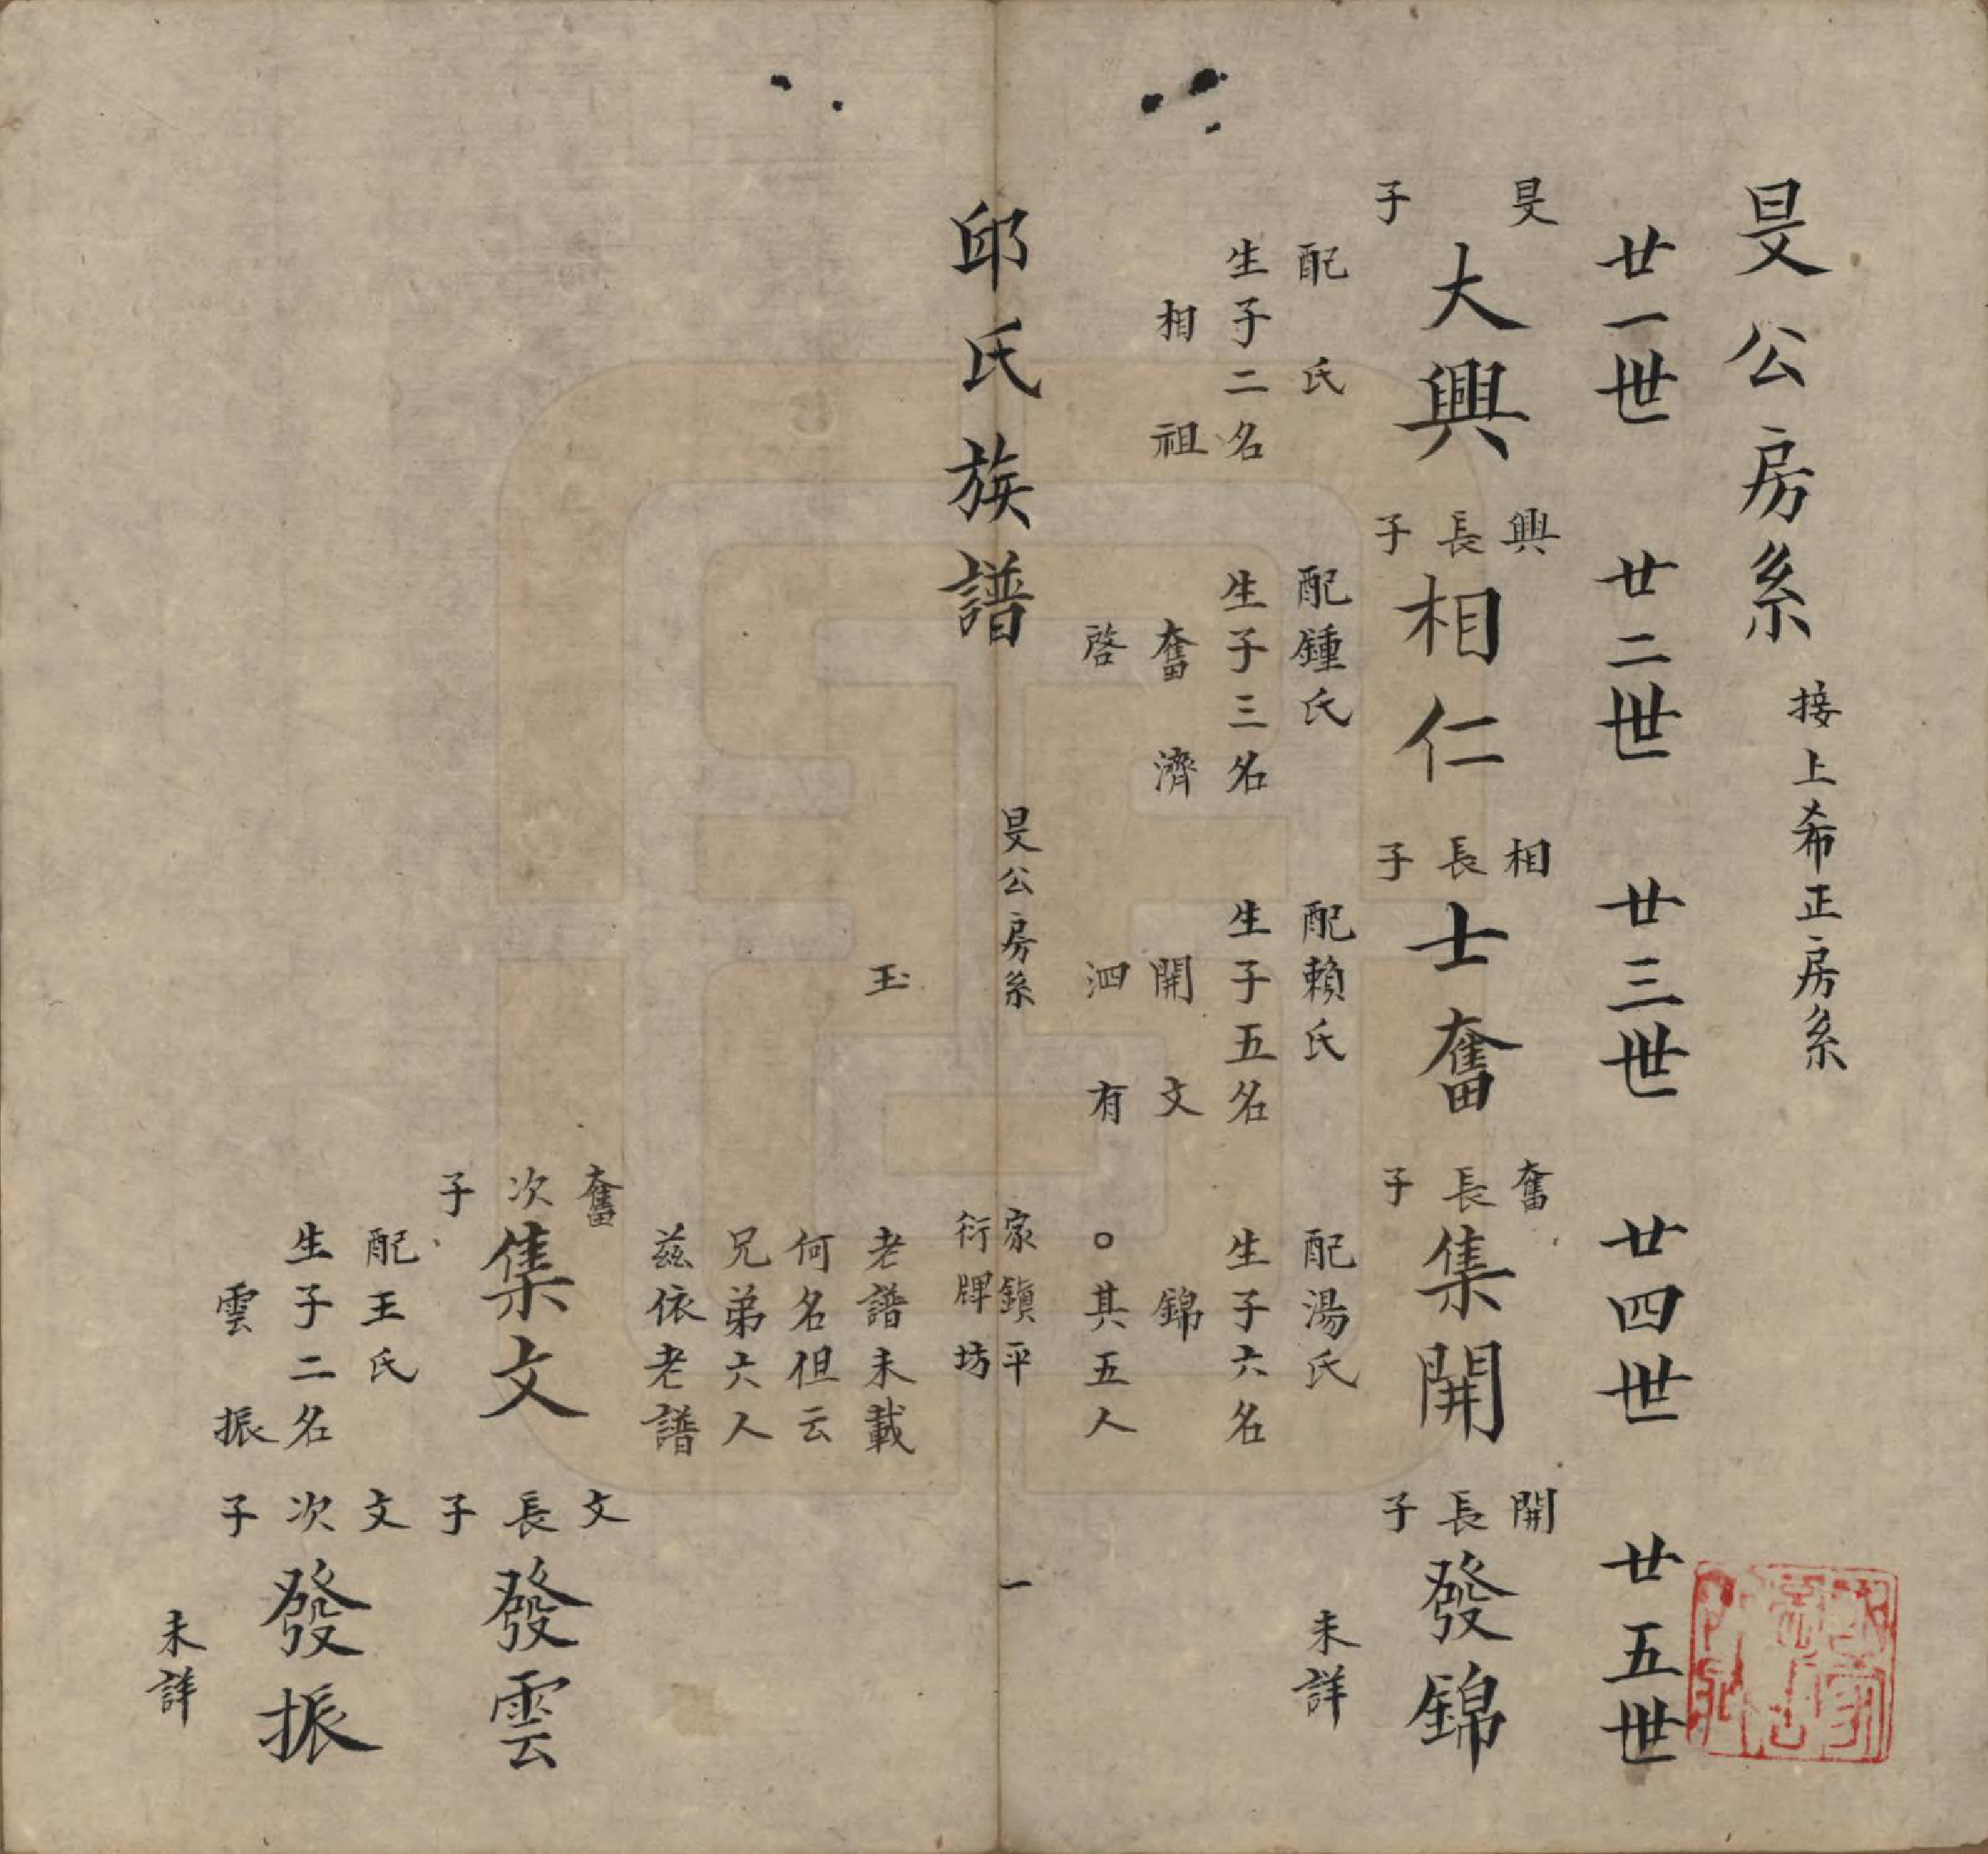 旻公房系 接上希正房系
廿一世 廿二世 廿三世 廿四世 廿五世
旻子 大興
配 氏
生子二名
相 祖
興長子 相仁
配鍾氏
生子三名
奮 濟
啓
相長子 士奮
配賴氏
生子五名
開 文
泗 有
玉
奮長子 集開
配湯氏
生子六名
錦
○其五人
老譜未載
何名但云
兄弟六人
茲依老譜
開長子 發錦
未詳
邱氏族譜 旻公房系 家鎮平
衍牌坊 一
奮次子 集文
配王氏
生子二名
雲 振
文長子 發雲
文次子 發振
未詳